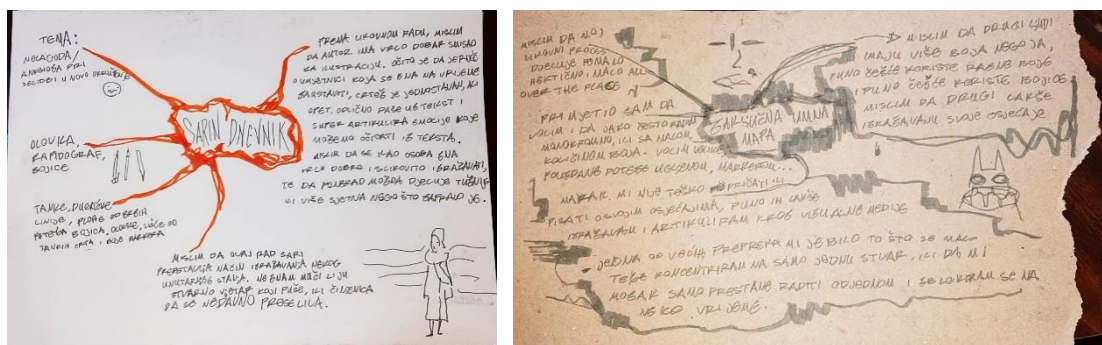 TEMA:
NELAGODA/
ANKSIOZA PRI
SELIDBI U NOVO OKRUŽENJE
OLOVKA,
RAPIDOGRAF,
BOJICE
TANKE, DUGAČKE
LINIJE, PLOHE OD
POTEZA BOJICA, OLOVKE,
TANKIH CRTA I BOJE MARKERA
SARIN DNEVNIK
PREMA LIKOVNOM RADU, MISLIM
DA AUTOR IMA VRLO DOBAR SMISAO
ZA ILUSTRACIJU. OČITO JE DA JE RIJEČ
O UMJETNICI KOJA SE ZNA NA VRIJEME
ZAUSTAVITI, CRTEŽ JE JEDNOSTAVAN, ALI
OPET, ODLIČNO PAŠE UZ TEKST I
SUPER ARTIKULIRA EMOCIJE KOJE
MOŽEMO OČITATI IZ TEKSTA.
MISLIM DA SE KAO OSOBA ZNA
VRLO DOBRO I SLIKOVITO IZRAŽAVATI,
TE DA PONEKAD MOŽDA DJELUJE TUŽNIJE
ILI VIŠE SJETNA NEGO ŠTO ZAPRAVO JE.
MISLIM DA OVAJ RAD SARI
PREDSTAVLJA NAČIN IZRAŽAVANJA NEKOG
UNUTARNJEG STANJA. NE ZNAM MUČI LI JU
STVARNO VJETAR KOJI PUŠE, ILI ČINJENICA
DA SE NEDAVNO PRESELILA.
MISLIM DA MOJ
LIKOVNI PROCES
DJELUJE POMALO
HEKTIČNO I MALO ALL
OVER THE PLACE
PRIMIJETIO SAM DA
VOLIM I DA JAKO ČESTO RADIM
MONOKROMNO, ILI SA MALOM
KOLIČINOM BOJA. VOLIM VELIKE
POTEZE UGLJENOM, MARKEROM...
ZAKLJUČNA UMNA
MAPA
MISLIM DA DRUGI LJUDI
IMAJU VIŠE BOJA NEGO JA,
PUNO ČEŠĆE KORISTE RAZNE BOJE
I PUNO ČEŠĆE KORISTE BOJICE
MISLIM DA DRUGI LAKŠE
IZRAŽAVAJU SVOJE OSJEĆAJE
MAKAR MI NIJE TEŠKO PRIČATI ILI
PISATI O SVOJIM OSJEĆAJIMA, PUNO IH LAKŠE
IZRAŽAVAM I ARTIKULIRAM KROZ VIZUALNE MEDIJE
JEDNA OD VEĆIH PREPREKA MI JE BILO TO ŠTO SE MALO
TEŽE KONCENTRIRAM NA SAMO JEDNU STVAR, ILI DA MI
MOZAK SAMO PRESTANE RADITI ODJEDNOM I ZBLOKIRAM SE NA
NEKO VRIJEME.